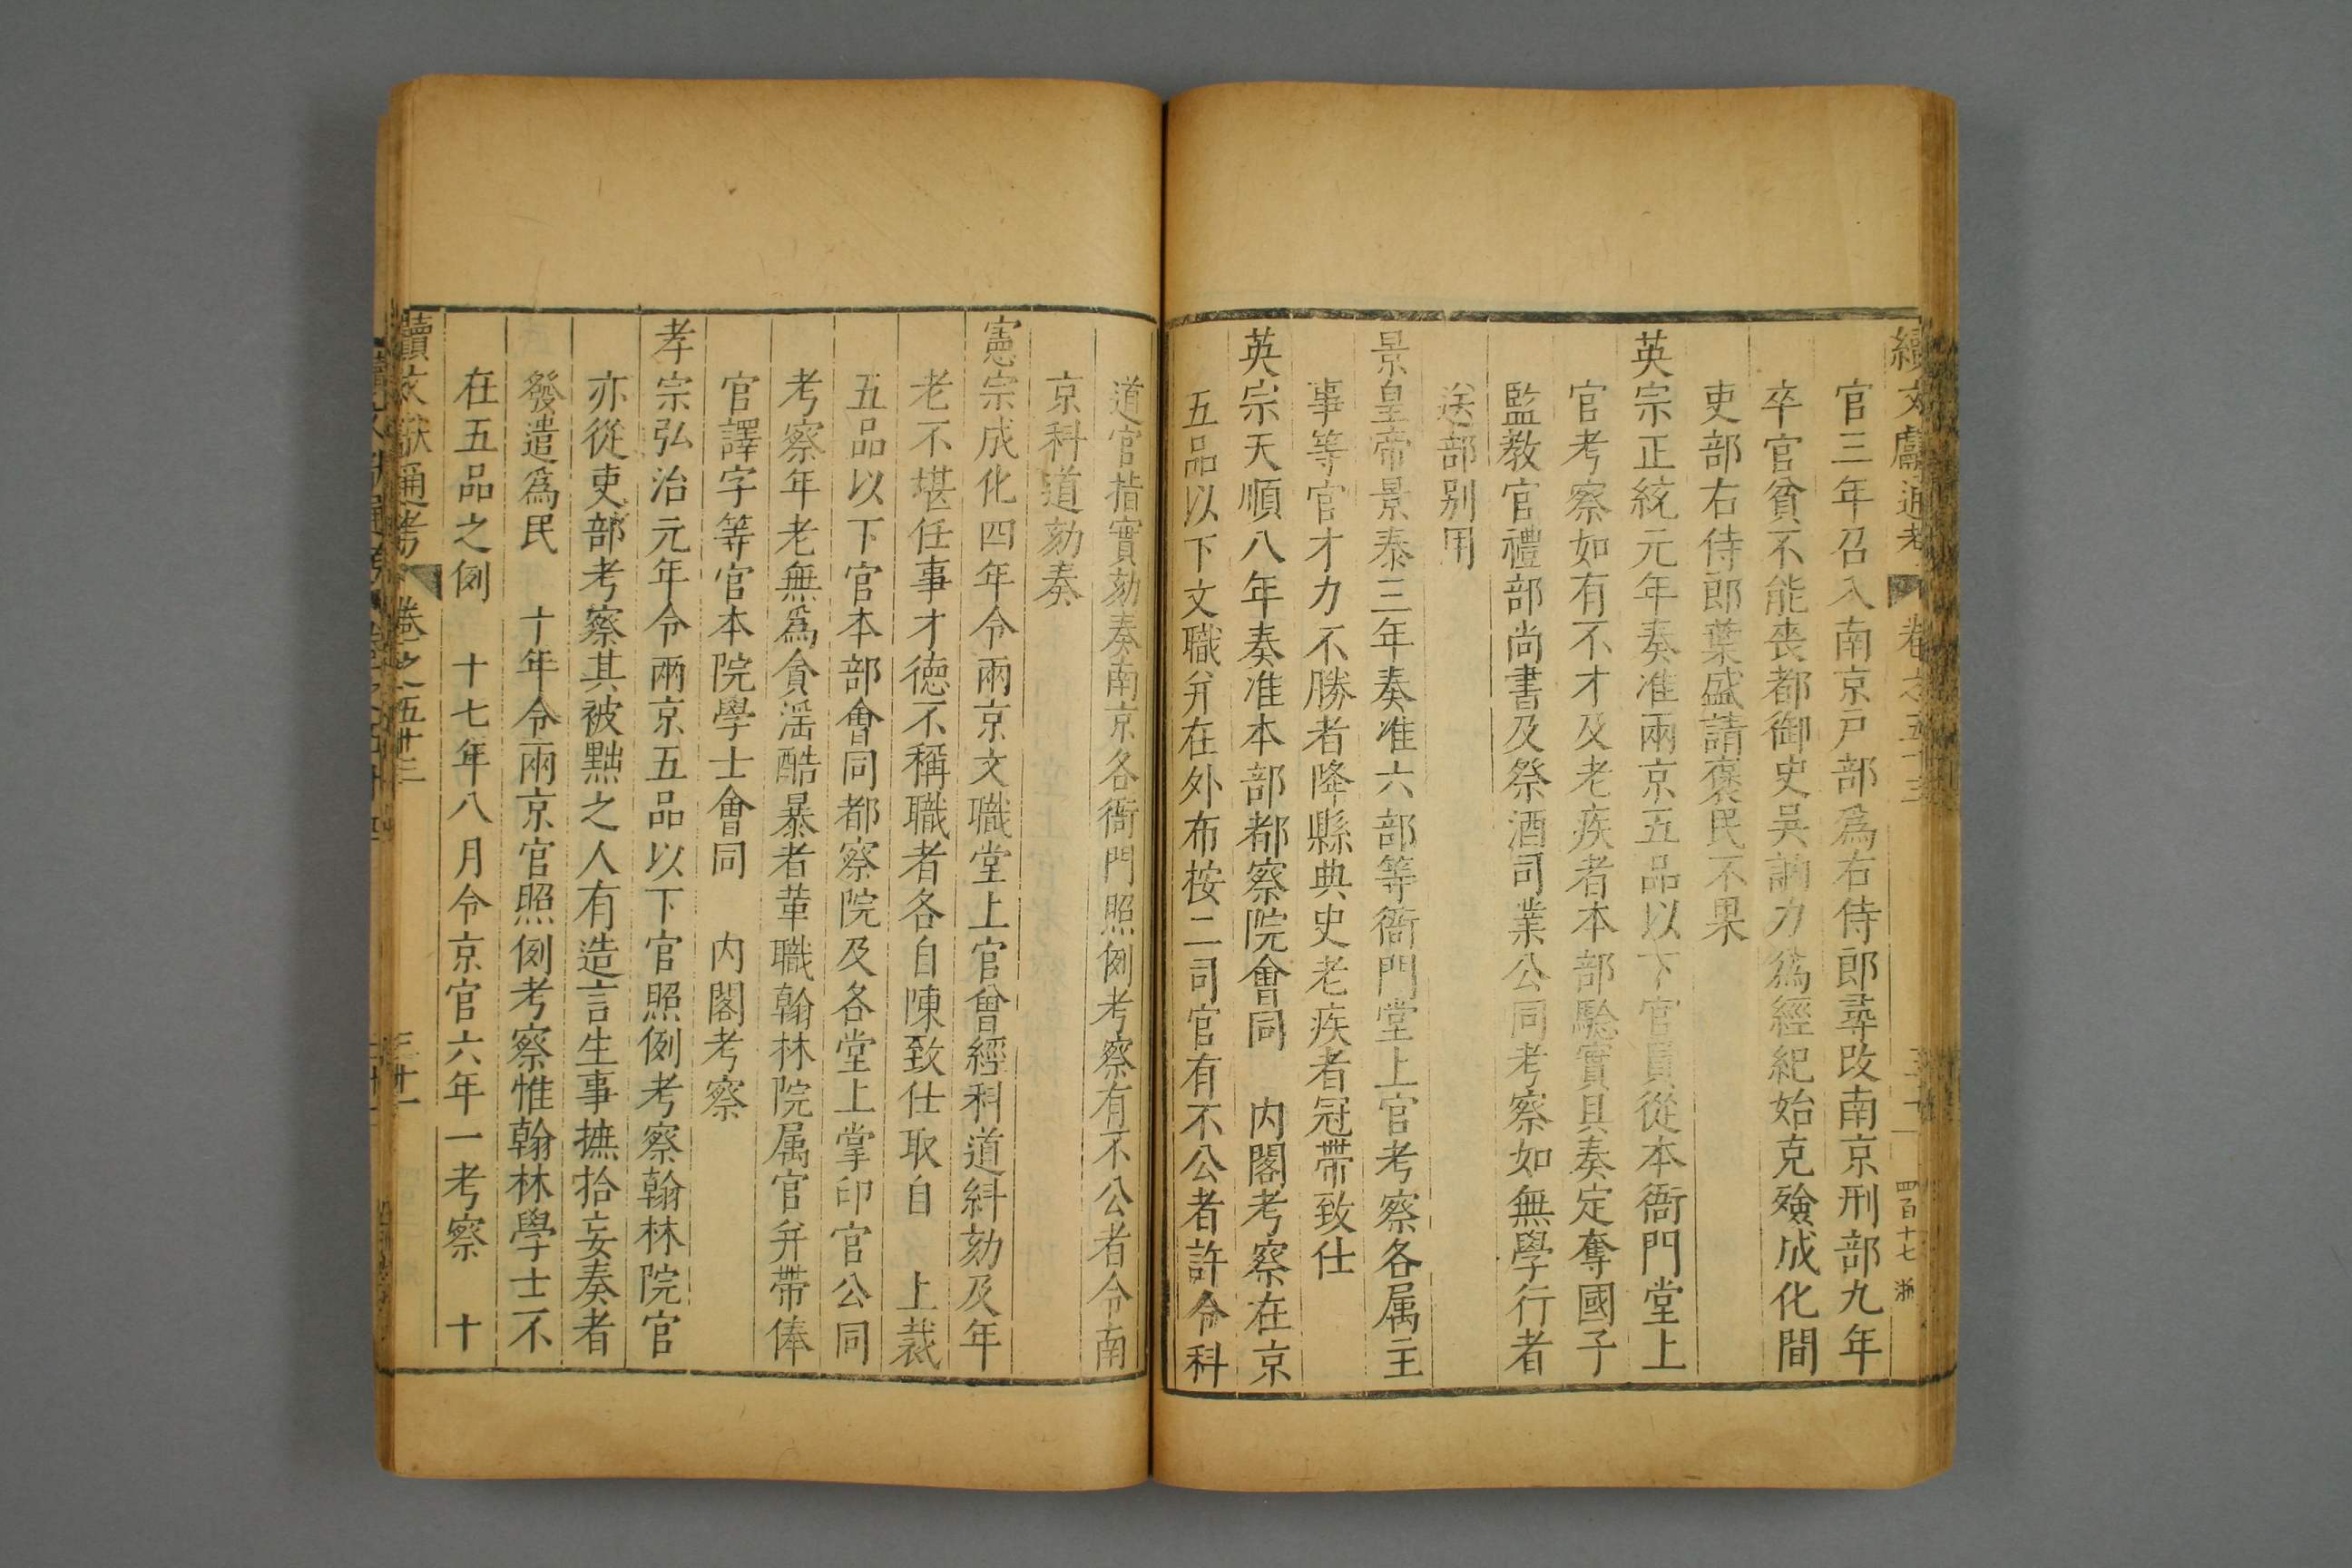 續文獻通考 卷之五十三 三十 四百十七 浙
官三年召入南京戸部爲右侍郎尋改南京刑部九年
卒官貧不能喪都御史吳訥力爲經紀始克殮成化間
吏部右侍郎葉盛請褒民不果
英宗正統元年奏准兩京五品以下官員從本衙門堂上
官考察如有不才及老疾者本部驗實具奏定奪國子
監教官禮部尚書及祭酒司業公同考察如無學行者
送部别用
景皇帝景泰三年奏准六部等衙門堂上官考察各属主
事等官才力不勝者降縣典史老疾者冠帶致仕
英宗天順八年奏准本部都察院會同 内閣考察在京
五品以下文職并在外布按二司官有不公者許令科
道官指實劾奏南京各衙門照例考察有不公者令南
京科道劾奏
憲宗成化四年令兩京文職堂上官曾經科道糾劾及年
老不堪任事才德不稱職者各自陳致仕取自 上裁
五品以下官本部會同都察院及各堂上掌印官公同
考察年老無爲貪淫酷暴者革職翰林院属官并帶俸
官譯字等官本院學士會同 内閣考察
孝宗弘治元年令兩京五品以下官照例考察翰林院官
亦從吏部考察其被黜之人有造言生事摭拾妄奏者
發遣爲民 十年令兩京官照例考察惟翰林學士不
在五品之例 十七年八月令京官六年一考察 十
續文獻通考 卷之五十三 三十一